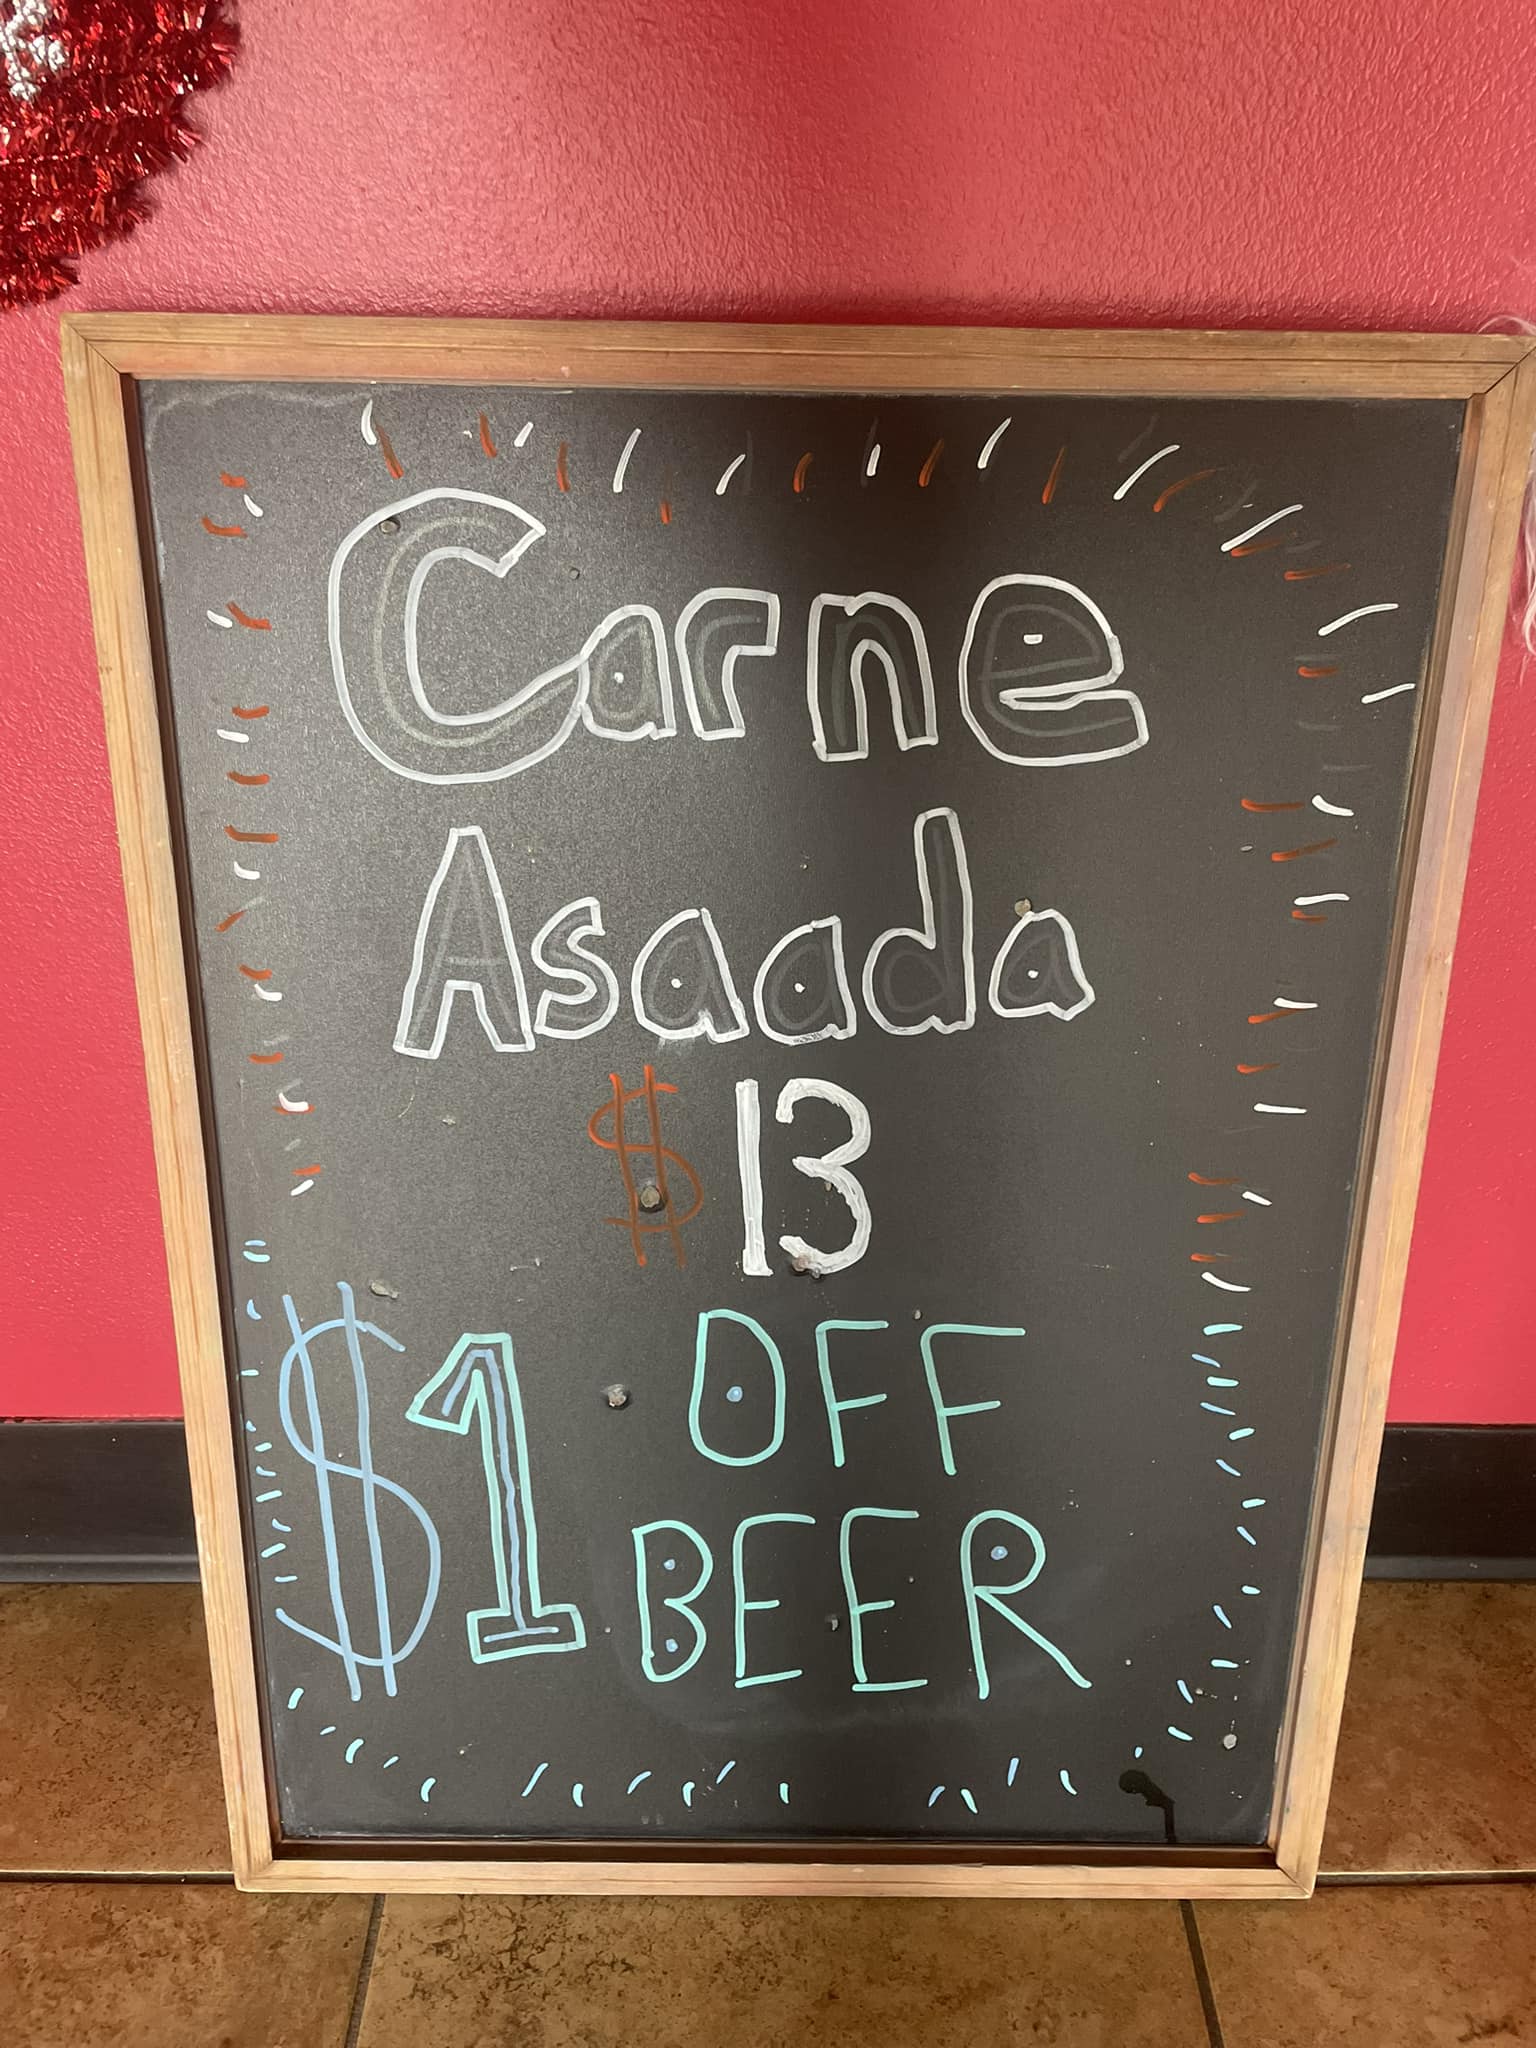 Carne
Asaada
$13
$1 OFF
BEER